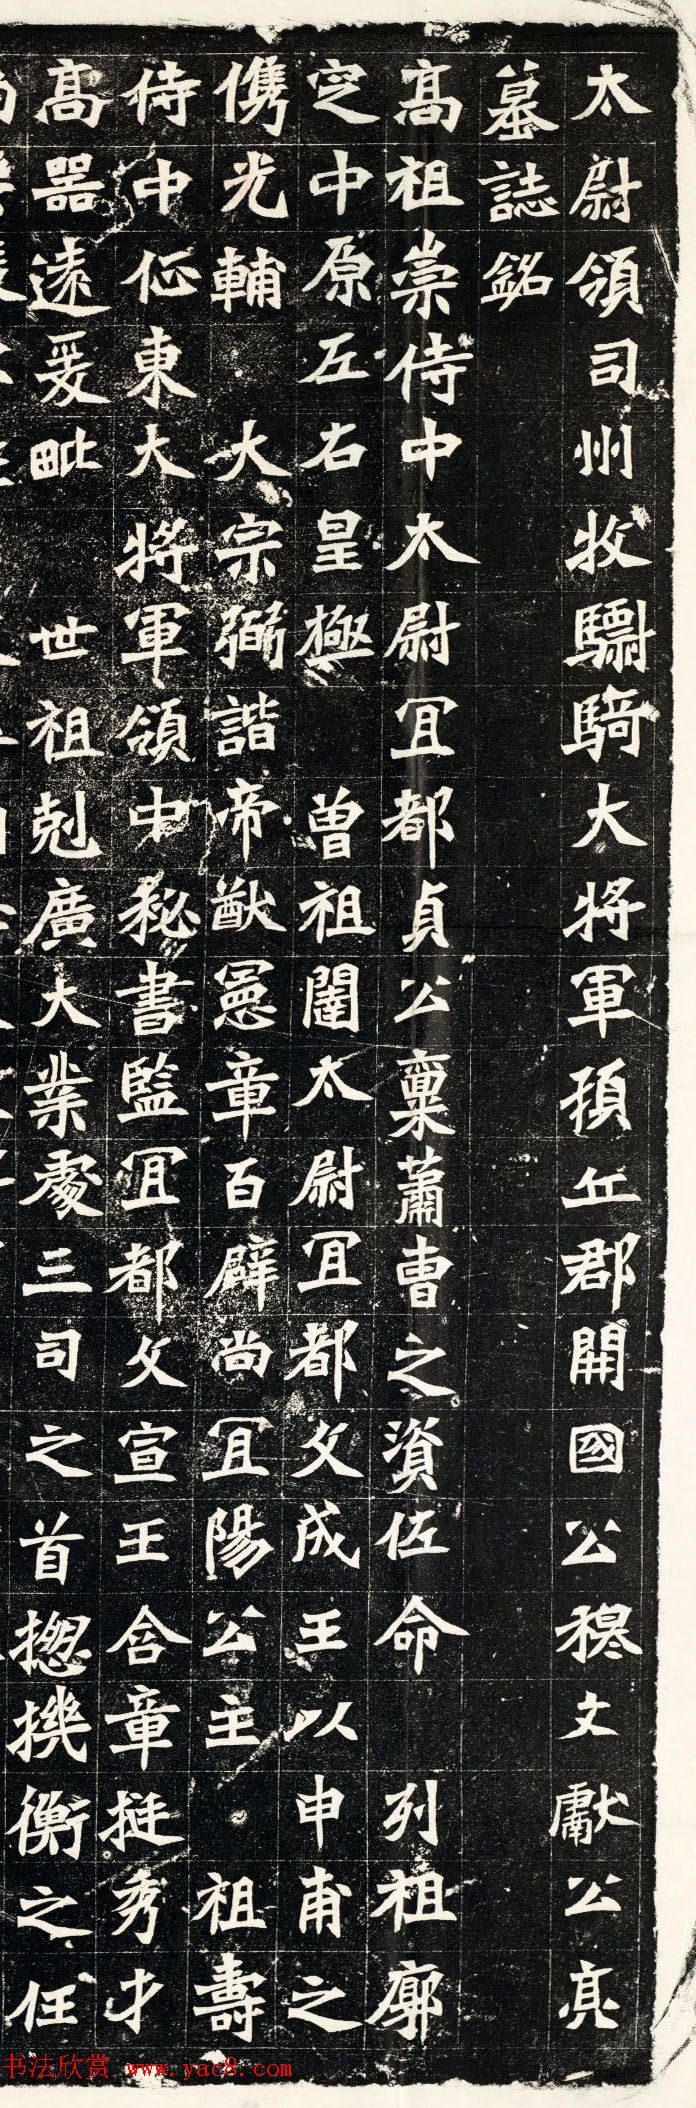 太尉領司州牧驃騎大將軍頓丘郡開國公穆文獻公亮
墓誌銘
高祖崇侍中太尉冝都貞公稟蕭曹之資佐命列祖廓
㝎中原左右皇極曾祖闥太尉冝都文成王以申甫之
儁光輔大宗弼諧帝猷憲章百辟尚冝陽公主祖壽
侍中征東大將軍領中秘書監冝都文宣王含章挺秀才
高器遠爰毗世祖剋廣大業處三司之首揔機衡之任
书法欣赏 www.yac8.com